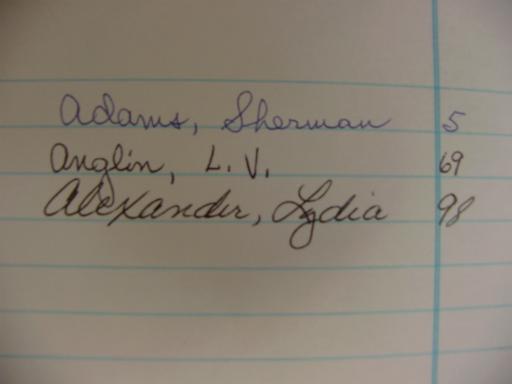 Adams, Sherman 5
Anglin, L. V. 69
Alexander, Lydia 98